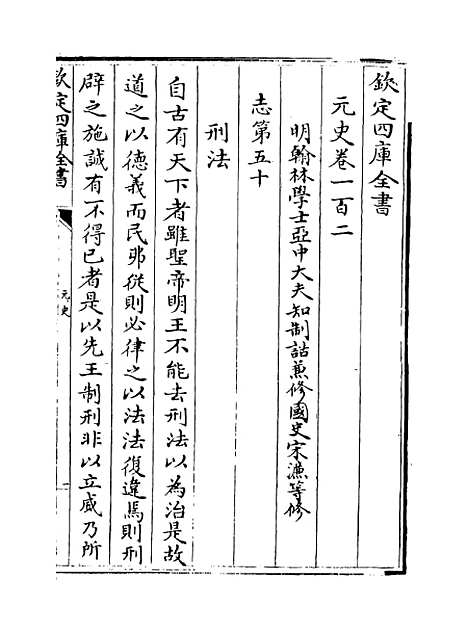 欽定四庫全書
元史卷一百二
明翰林學士亞中大夫知制誥兼修國史宋濂等修
志第五十
刑法
自古有天下者雖聖帝明王不能去刑法以為治是故
道之以德義而民弗從則必律之以法法復違焉則刑
辟之施誠有不得已者是以先王制刑非以立威乃所
欽定四庫全書
元史
一